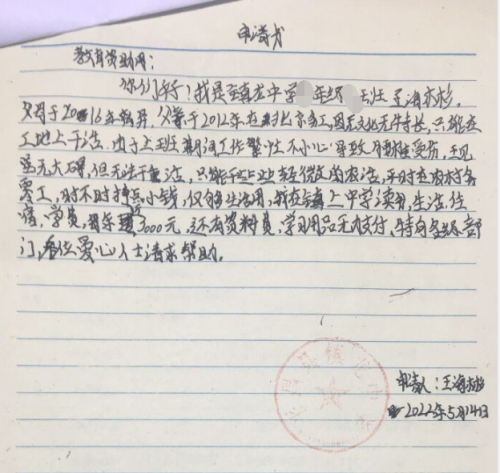 申请书
教育资助网：
你们好！我是镇龙中学年级班王海杉，
父母于2016年离异，父亲于2012年在北京务工，因无文化无特长，只能在
工地上干活。由于上班期间工作繁忙不小心导致腰椎受伤，
无大碍，但无法干重活，只能干些轻微的农活，平时在农村务
零工，时不时挣点小钱，仅够生活用，我在镇上中学读书，生活住
宿，学费，每年3000元，还有资料费，学习用品无力支付，特向各级部
门，各位爱心人士请求帮助。
申请人：王海杉
2022年5月14日